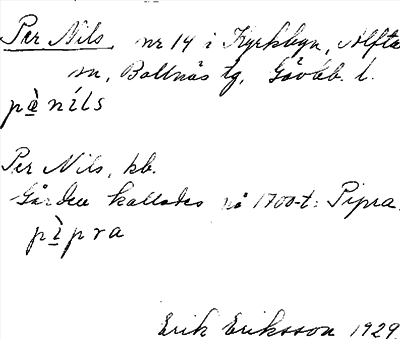 Per Nils, nr 14 i Kyrkbyn, Alfta
sn, Bollnäs tg, Gävleb. l.
pὲ níls
Per Nils, kb.
Gården kallades på 1700-t: Pipra.
pìpra
Erik Eriksson 1929.